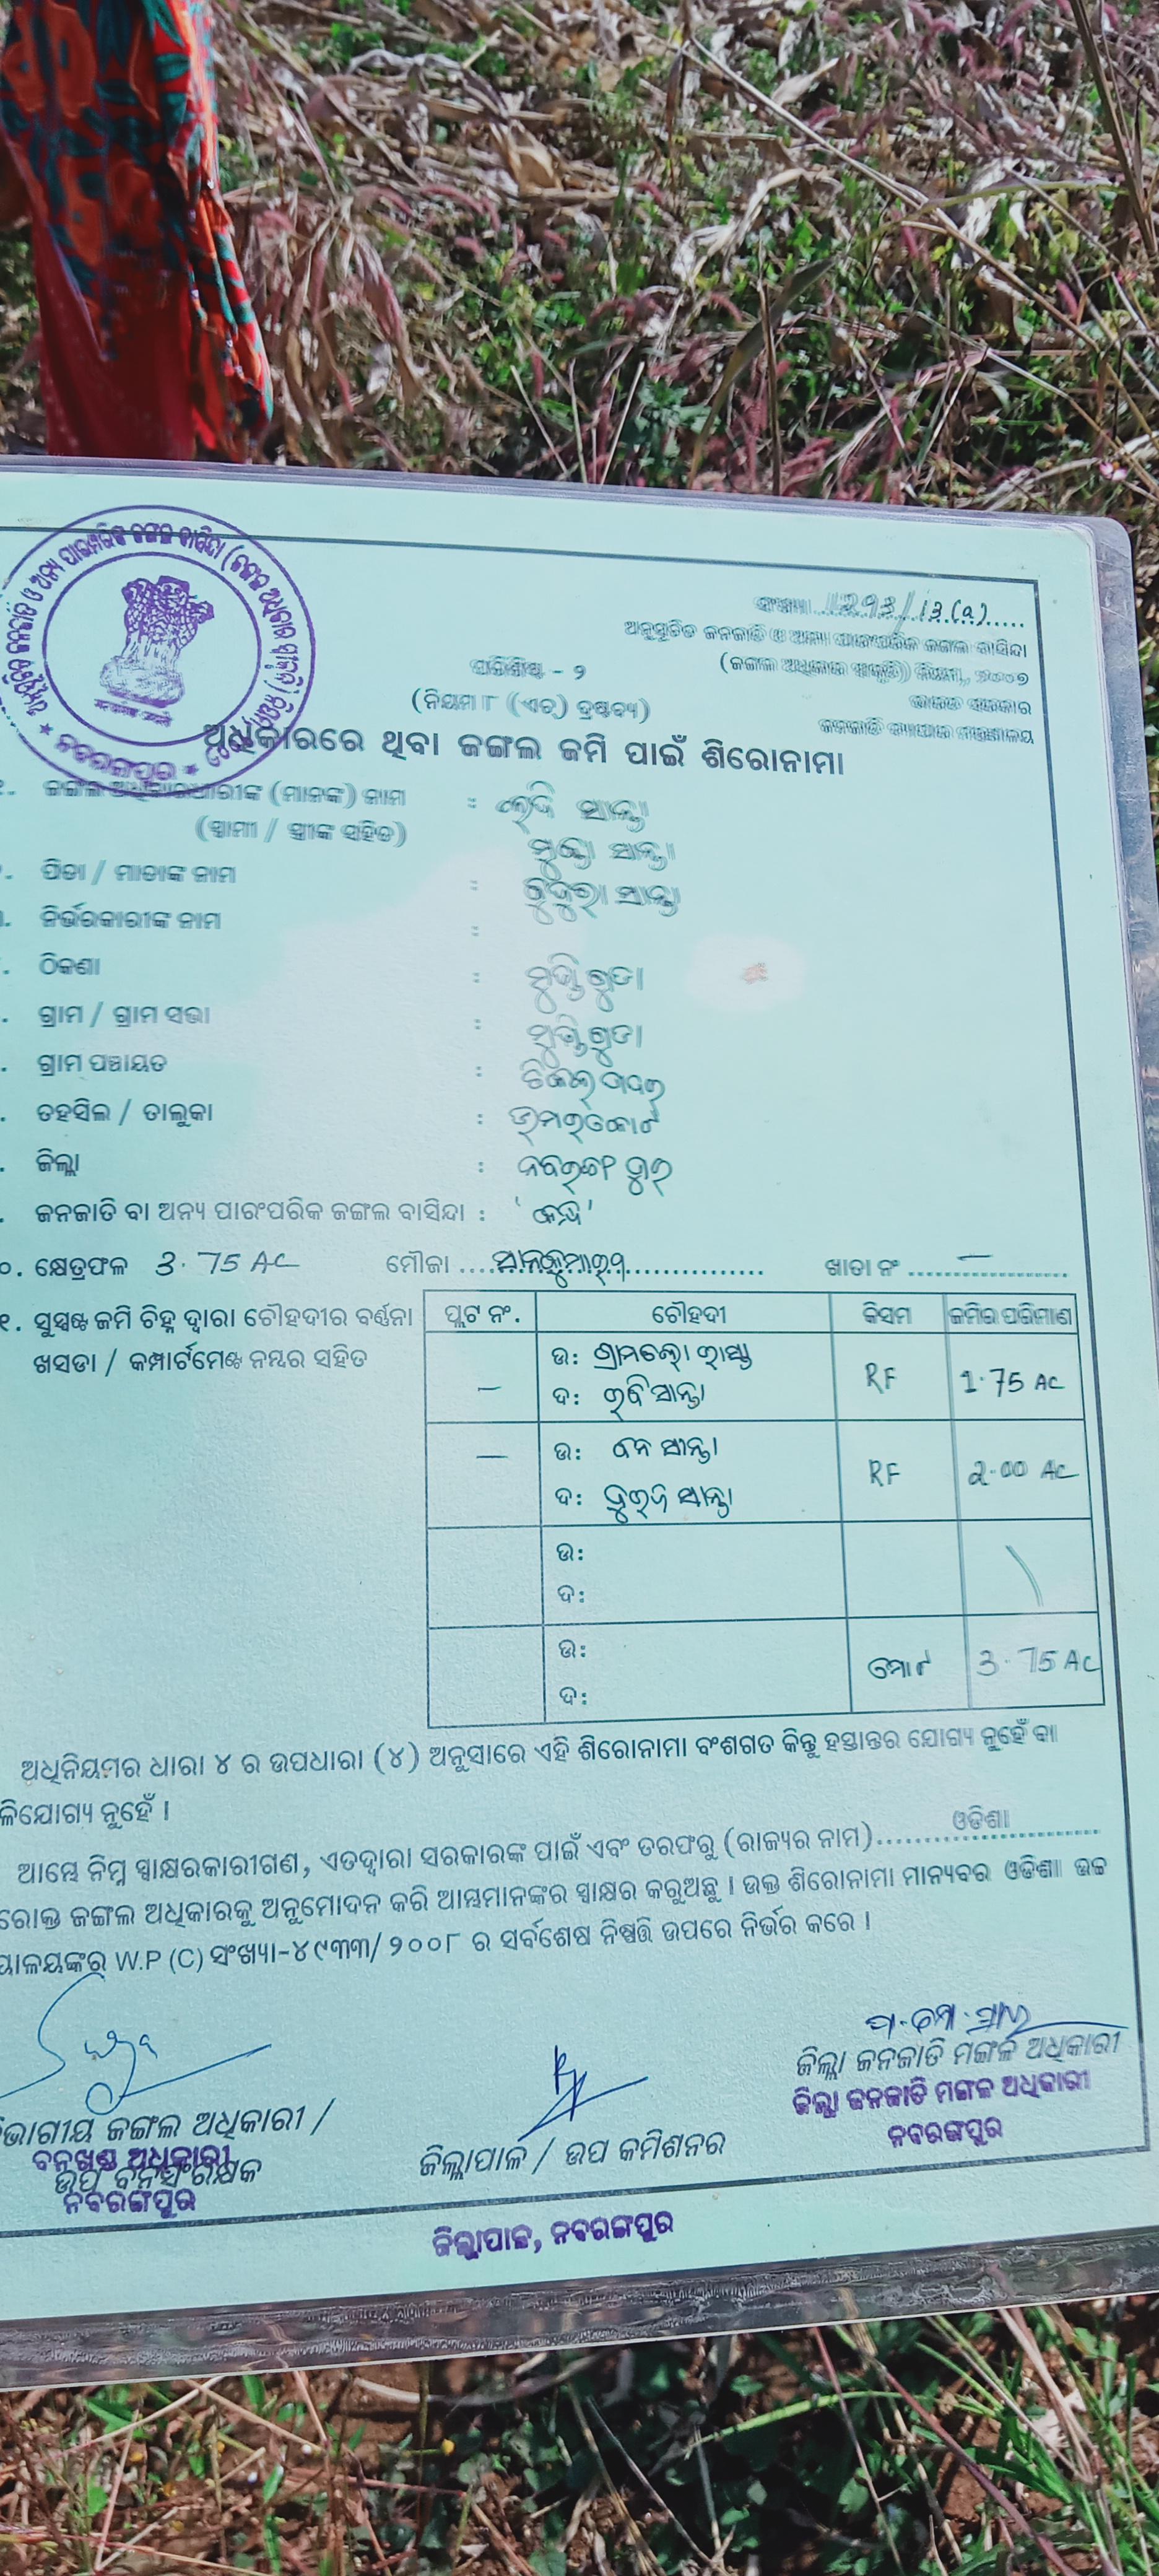 ସଂଖ୍ୟା 293/13(a)
ଅନୁସୂଚିତ ଜନଜାତି ଓ ଅନ୍ୟ ପାରଂପରିକ ଜଙ୍ଗଲ ବାସିନ୍ଦା
(ଜଙ୍ଗଲ ଅଧିକାର ସ୍ୱୀକୃତି) ନିୟମ, ୨୦୦୭
ଭାରତ ସରକାର
ଜନଜାତି ବ୍ୟାପାର ମନ୍ତ୍ରଣାଳୟ
ପରିଶିଷ୍ଟ - ୨
(ନିୟମ ୮ (ଏଚ୍) ଦ୍ରଷ୍ଟବ୍ୟ)
ଅଧିକାରରେ ଥିବା ଜଙ୍ଗଲ ଜମି ପାଇଁ ଶିରୋନାମା
ନବରଙ୍ଗପୁର
ଜଙ୍ଗଲ ଅଧିକାରଧାରୀଙ୍କ (ମାନଙ୍କ) ନାମ :
(ସ୍ୱାମୀ / ସ୍ତ୍ରୀଙ୍କ ସହିତ)
ସାନ୍ତା
ସାନ୍ତା
ପିତା / ମାତାଙ୍କ ନାମ : ବୁଦୁରା ସାନ୍ତା
ନିର୍ଭରକାରୀଙ୍କ ନାମ :
ଠିକଣା : ମୁର୍ତ୍ତିଗୁଡା
ଗ୍ରାମ / ଗ୍ରାମ ସଭା : ମୁର୍ତ୍ତିଗୁଡା
ଗ୍ରାମ ପଞ୍ଚାୟତ :
ତହସିଲ / ତାଲୁକା : ଉମରକୋଟ
ଜିଲ୍ଲା : ନବରଙ୍ଗପୁର
ଜନଜାତି ବା ଅନ୍ୟ ପାରଂପରିକ ଜଙ୍ଗଲ ବାସିନ୍ଦା : 'କନ୍ଧ'
୦. କ୍ଷେତ୍ରଫଳ 3.75 AC ମୌଜା ଖାତା ନଂ —
୧. ସୁସ୍ପଷ୍ଟ ଜମି ଚିହ୍ନ ଦ୍ୱାରା ଚୌହଦୀର ବର୍ଣ୍ଣନା
ଖସଡା / କମ୍ପାର୍ଟମେଣ୍ଟ ନମ୍ବର ସହିତ
ପ୍ଲଟ ନଂ. ଚୌହଦୀ କିସମ ଜମିର ପରିମାଣ
— ଉ: ରାସ୍ତା RF 1.75 AC
ଦ: ରବି ସାନ୍ତା
— ଉ: ସାନ୍ତା RF 2.00 AC
ଦ: ସାନ୍ତା
ଉ:
ଦ:
ଉ: ମୋଟ 3.75 AC
ଦ:
ଅଧିନିୟମର ଧାରା ୪ ର ଉପଧାରା (୪) ଅନୁସାରେ ଏହି ଶିରୋନାମା ବଂଶଗତ କିନ୍ତୁ ହସ୍ତାନ୍ତର ଯୋଗ୍ୟ ନୁହେଁ ବା
ଳିଯୋଗ୍ୟ ନୁହେଁ ।
ଆମ୍ଭେ ନିମ୍ନ ସ୍ୱାକ୍ଷରକାରୀଗଣ, ଏତଦ୍ୱାରା ସରକାରଙ୍କ ପାଇଁ ଏବଂ ତରଫରୁ (ରାଜ୍ୟର ନାମ) ଓଡିଶା
ରୋକ୍ତ ଜଙ୍ଗଲ ଅଧିକାରକୁ ଅନୁମୋଦନ କରି ଆମ୍ଭମାନଙ୍କର ସ୍ୱାକ୍ଷର କରୁଅଛୁ । ଉକ୍ତ ଶିରୋନାମା ମାନ୍ୟବର ଓଡିଶା ଉଚ୍ଚ
ୟାଳୟଙ୍କର W.P (C) ସଂଖ୍ୟା-୪୯୩୩/୨୦୦୮ ର ସର୍ବଶେଷ ନିଷ୍ପତ୍ତି ଉପରେ ନିର୍ଭର କରେ ।
ଜିଲ୍ଲା ଜନଜାତି ମଙ୍ଗଳ ଅଧିକାରୀ
ଜିଲ୍ଲା ଜନଜାତି ମଙ୍ଗଳ ଅଧିକାରୀ
ନବରଙ୍ଗପୁର
ଜିଲ୍ଲାପାଳ / ଉପ କମିଶନର
ଜିଲ୍ଲାପାଳ, ନବରଙ୍ଗପୁର
ଭାଗୀୟ ଜଙ୍ଗଲ ଅଧିକାରୀ /
ବନଖଣ୍ଡ ଅଧିକାରୀ
ଉପ ବନସଂରକ୍ଷକ
ନବରଙ୍ଗପୁର